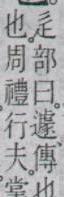 辵部曰。遽、傳也
也。周禮行夫。掌